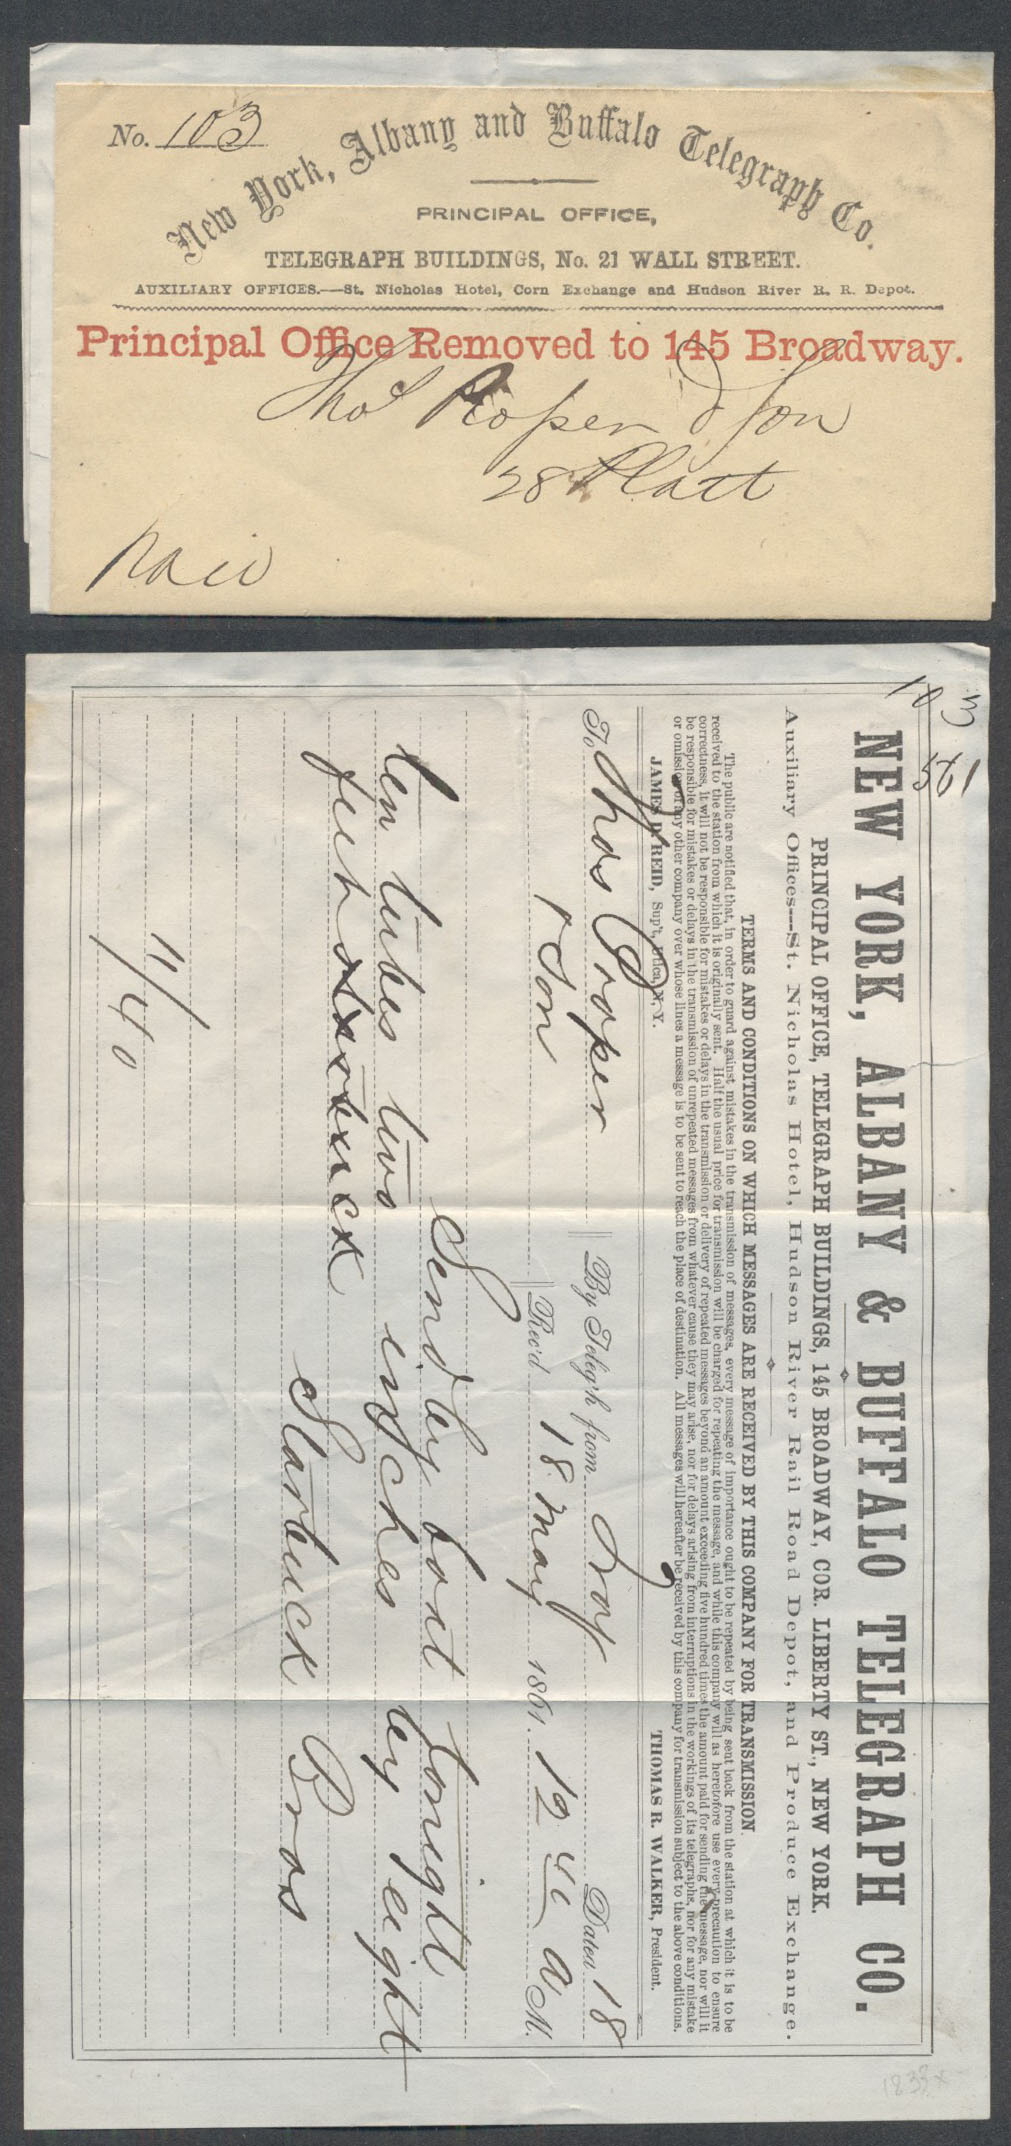 No. 103
New York, Albany and Buffalo Telegraph Co.
PRINCIPAL OFFICE,
TELEGRAPH BUILDINGS, No. 21 WALL STREET.
AUXILIARY OFFICES.—St. Nicholas Hotel, Corn Exchange and Hudson River R. R. Depot.
Principal Office Removed to 145 Broadway.
Thos Roper & Son
28 Platt
Paid
103
561
NEW YORK, ALBANY & BUFFALO TELEGRAPH CO.
PRINCIPAL OFFICE, TELEGRAPH BUILDINGS, 145 BROADWAY, COR. LIBERTY ST., NEW YORK.
Auxiliary Offices—St. Nicholas Hotel, Hudson River Rail Road Depot, and Produce Exchange.
TERMS AND CONDITIONS ON WHICH MESSAGES ARE RECEIVED BY THIS COMPANY FOR TRANSMISSION.
The public are notified that, in order to guard against mistakes in the transmission of messages, every message of importance ought to be repeated by being sent back from the station at which it is to be
received to the station from which it is originally sent. Half the usual price for transmission will be charged for repeating the message, and while this company will as heretofore use every precaution to ensure
correctness, it will not be responsible for mistakes or delays in the transmission or delivery of repeated messages beyond an amount exceeding five hundred times the amount paid for sending the message, nor will it
be responsible for mistakes or delays in the transmission of unrepeated messages from whatever cause they may arise, nor for delays arising from interruptions in the workings of its telegraphs, nor for any mistake
or omission of any other company over whose lines a message is to be sent to reach the place of destination. All messages will hereafter be received by this company for transmission subject to the above conditions.
JAMES D. REID, Sup't, Utica, N. Y. THOMAS R. WALKER, President.
To Thos Roper By Telegh from Troy Dated 18
& Son Rec'd 18 May 1861. 12 A M.
Send by boat tonight
ten tubes two inches by eight
feet
Starbuck Bros
11/40